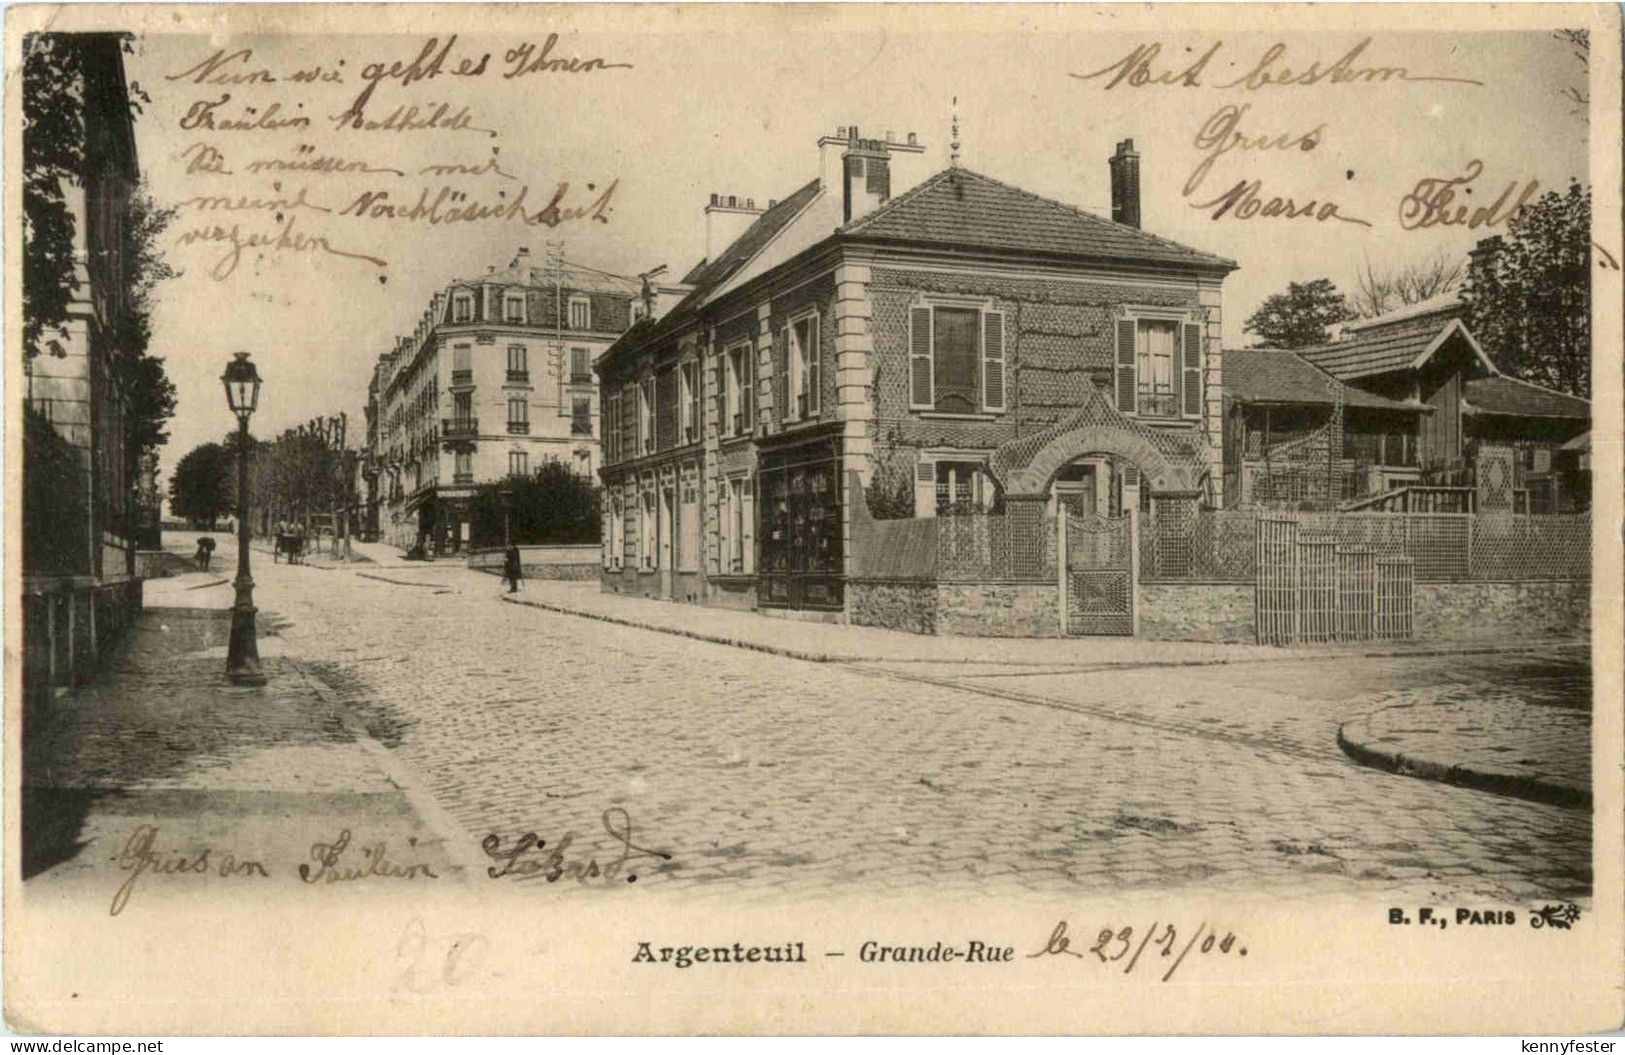 Nun wie geht es Ihnen
Fräulein Mathilde
Sie müssen mir
meine Nachläsichkeit
verzeihen
Mit bestem
Grus
Maria Friedl
Grus an Fräulein
B. F., PARIS
Argenteuil – Grande-Rue le 23/7/04.
20
the-submarine.ch
kennyfester